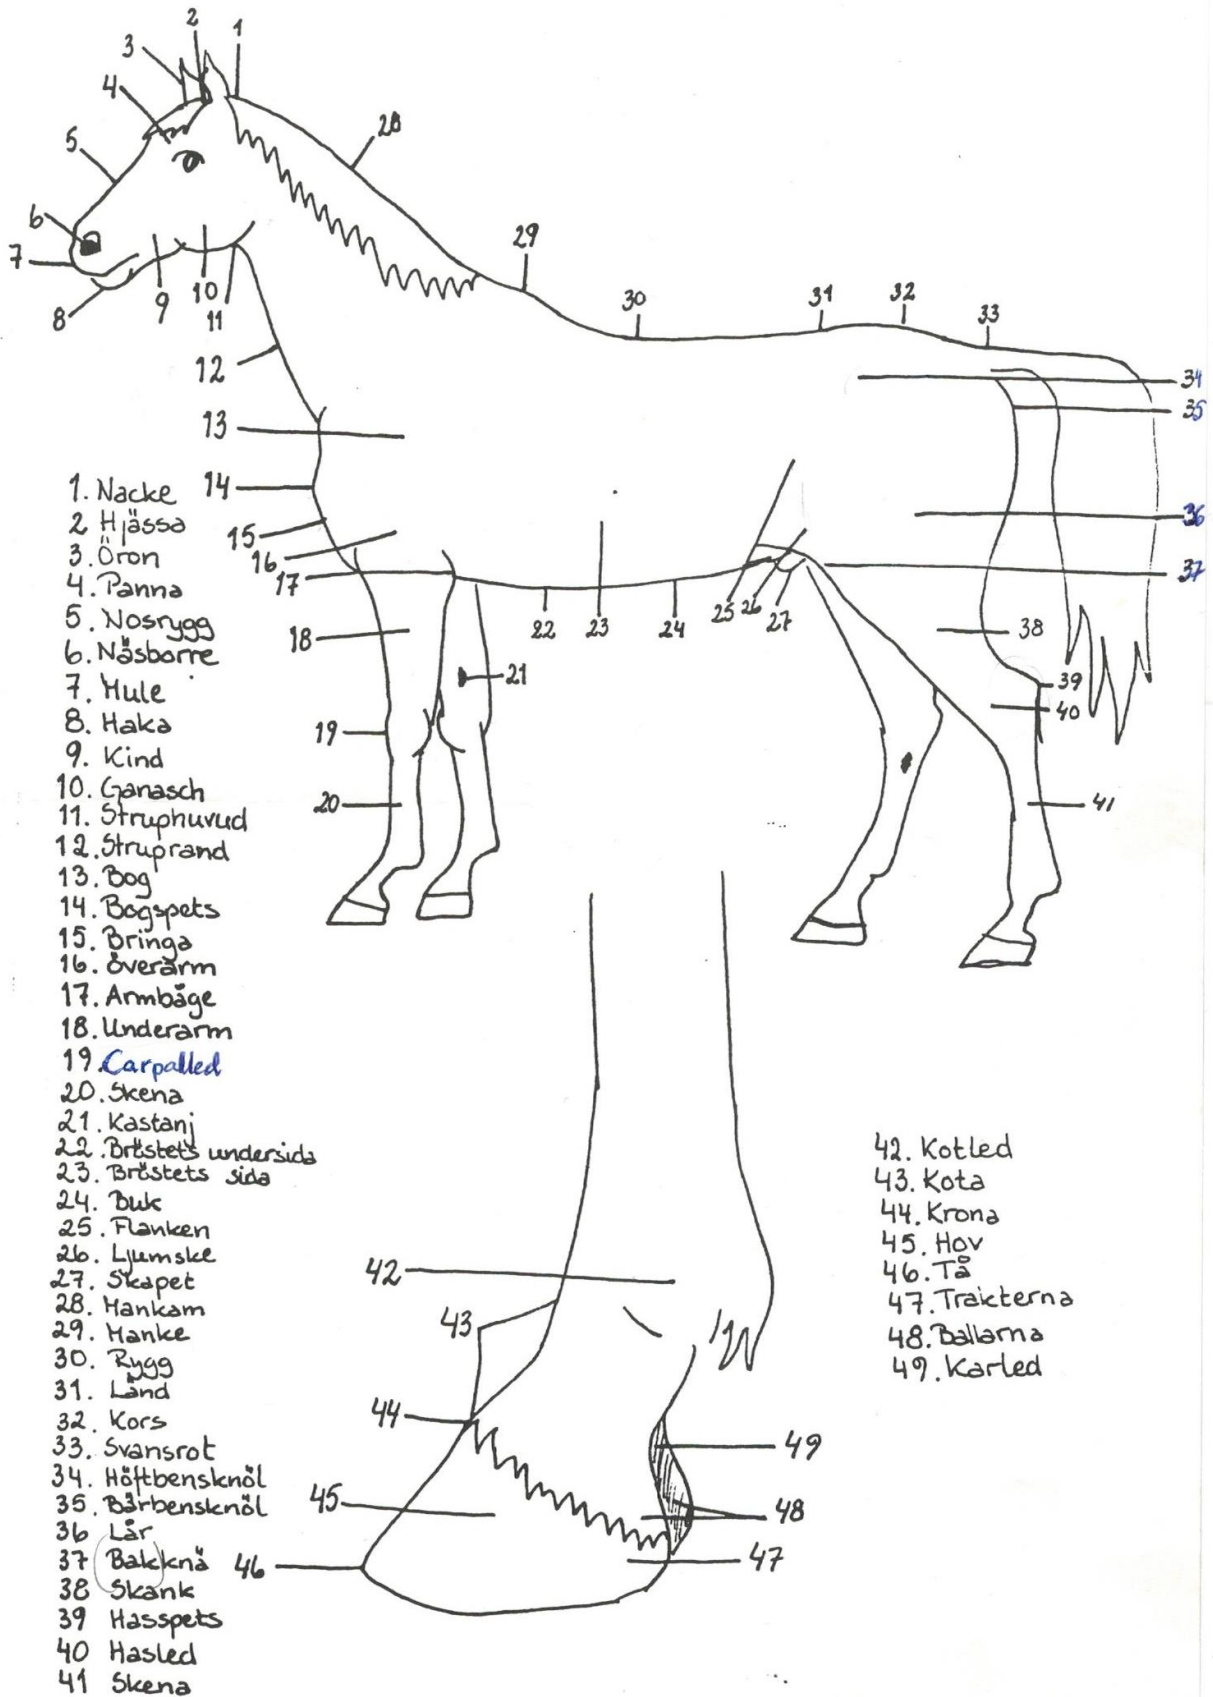 2
1
3
4
28
5
6
7
8
9
10
11
29
30
31
32
33
12
34
35
13
14
15
16
17
36
37
18
22
23
24
25
26
27
38
21
39
40
19
20
41
1. Nacke
2 Hjässa
3. Öron
4. Panna
5. Nosrygg
6. Näsborre
7. Mule
8. Haka
9. Kind
10. Ganasch
11. Struphuvud
12. Struprand
13. Bog
14. Bogspets
15. Bringa
16. överarm
17. Armbåge
18. Underarm
19. Carpalled
20. Skena
21. Kastanj
22. Bröstets undersida
23. Bröstets sida
24. Buk
25. Flanken
26. Ljumske
27. Skapet
28. Mankam
29. Manke
30. Rygg
31. Länd
32. Kors
33. Svansrot
34. Höftbensknöl
35. Bärbensknöl
36 Lår
37 Bakknä
38 Skank
39 Hasspets
40 Hasled
41 Skena
42. Kotled
43. Kota
44. Krona
45. Hov
46. Tå
47. Trakterna
48. Ballarna
49. Karled
42
43
44
49
45
48
46
47